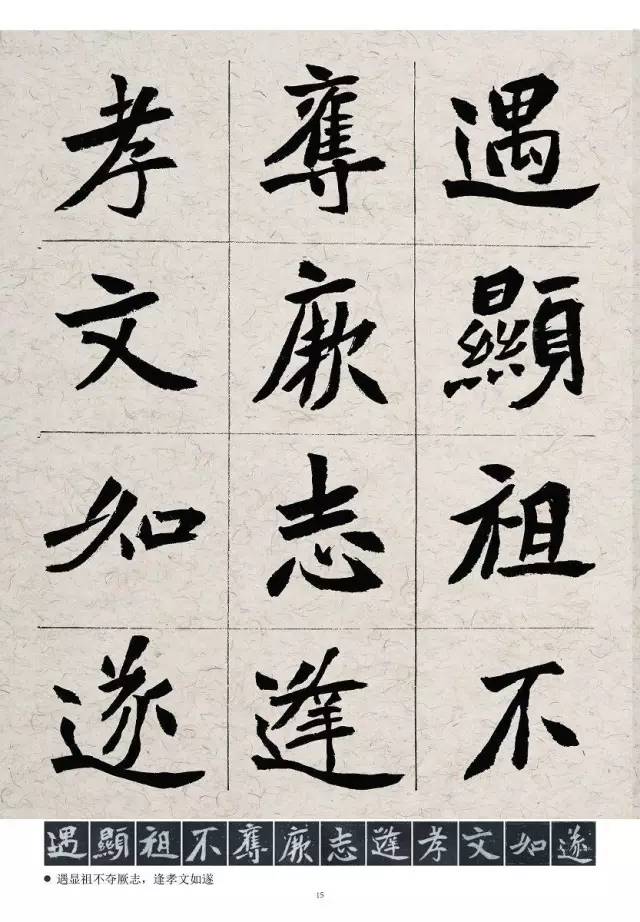 遇顯祖不
奪厥志逢
孝文如遂
遇顯祖不奪厥志逢孝文如遂
● 遇显祖不夺厥志，逢孝文如遂
15